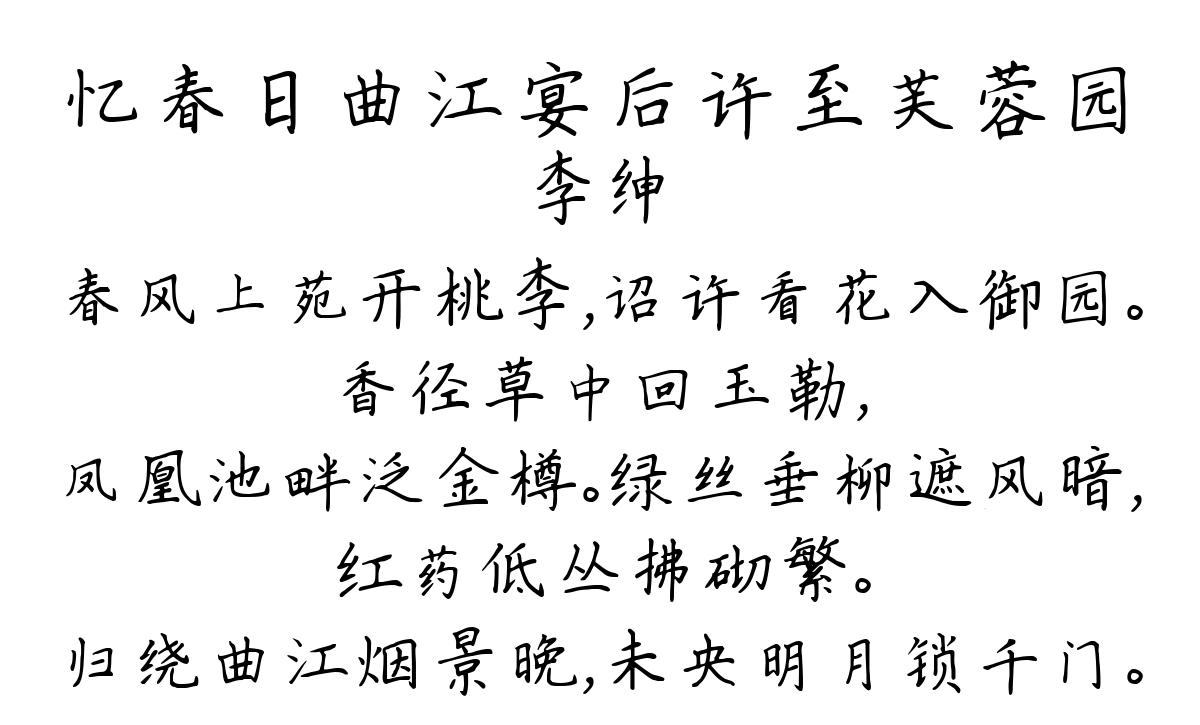 忆春日曲江宴后许至芙蓉园
李绅
春风上苑开桃李,诏许看花入御园。
香径草中回玉勒,
凤凰池畔泛金樽。绿丝垂柳遮风暗,
红药低丛拂砌繁。
归绕曲江烟景晚,未央明月锁千门。